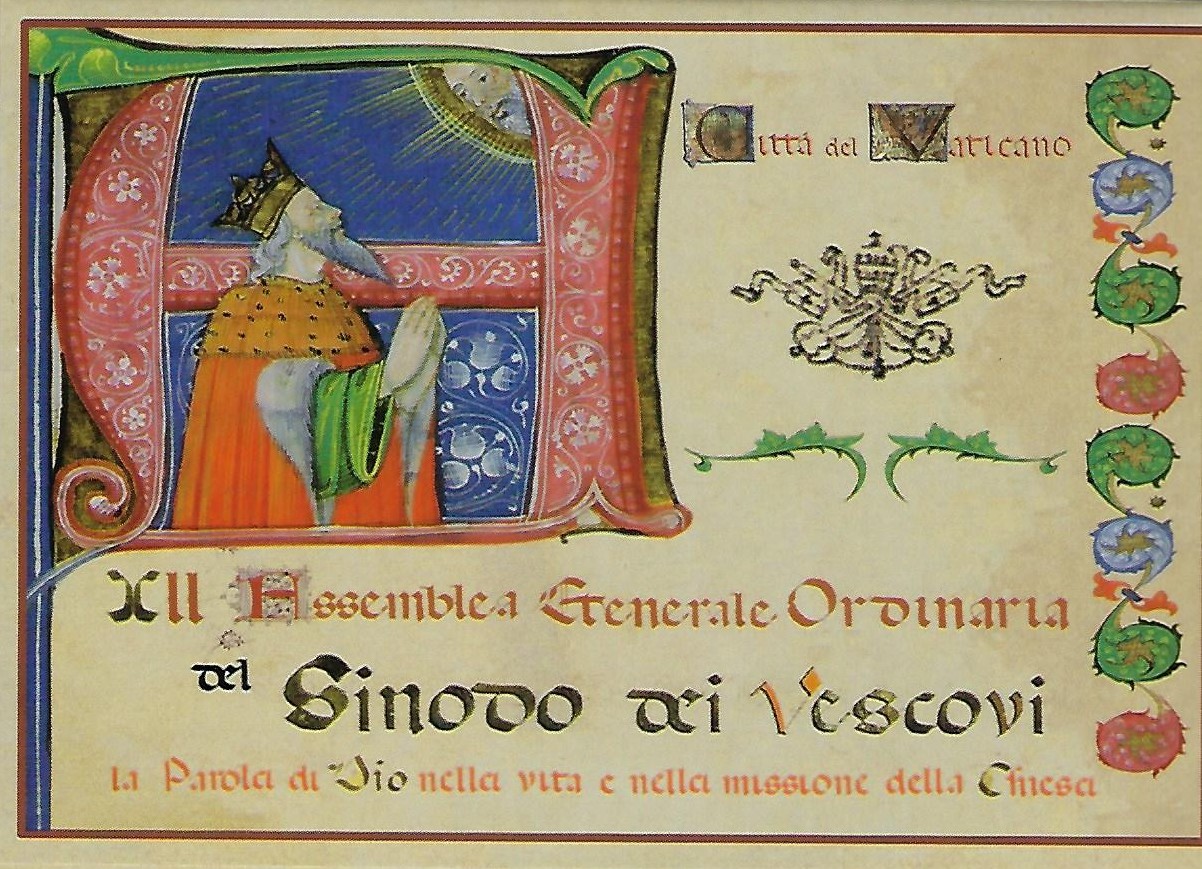 Città del Vaticano
XII Assemblea Generale Ordinaria
del Sinodo dei Vescovi
la Parola di Dio nella vita e nella missione della Chiesa